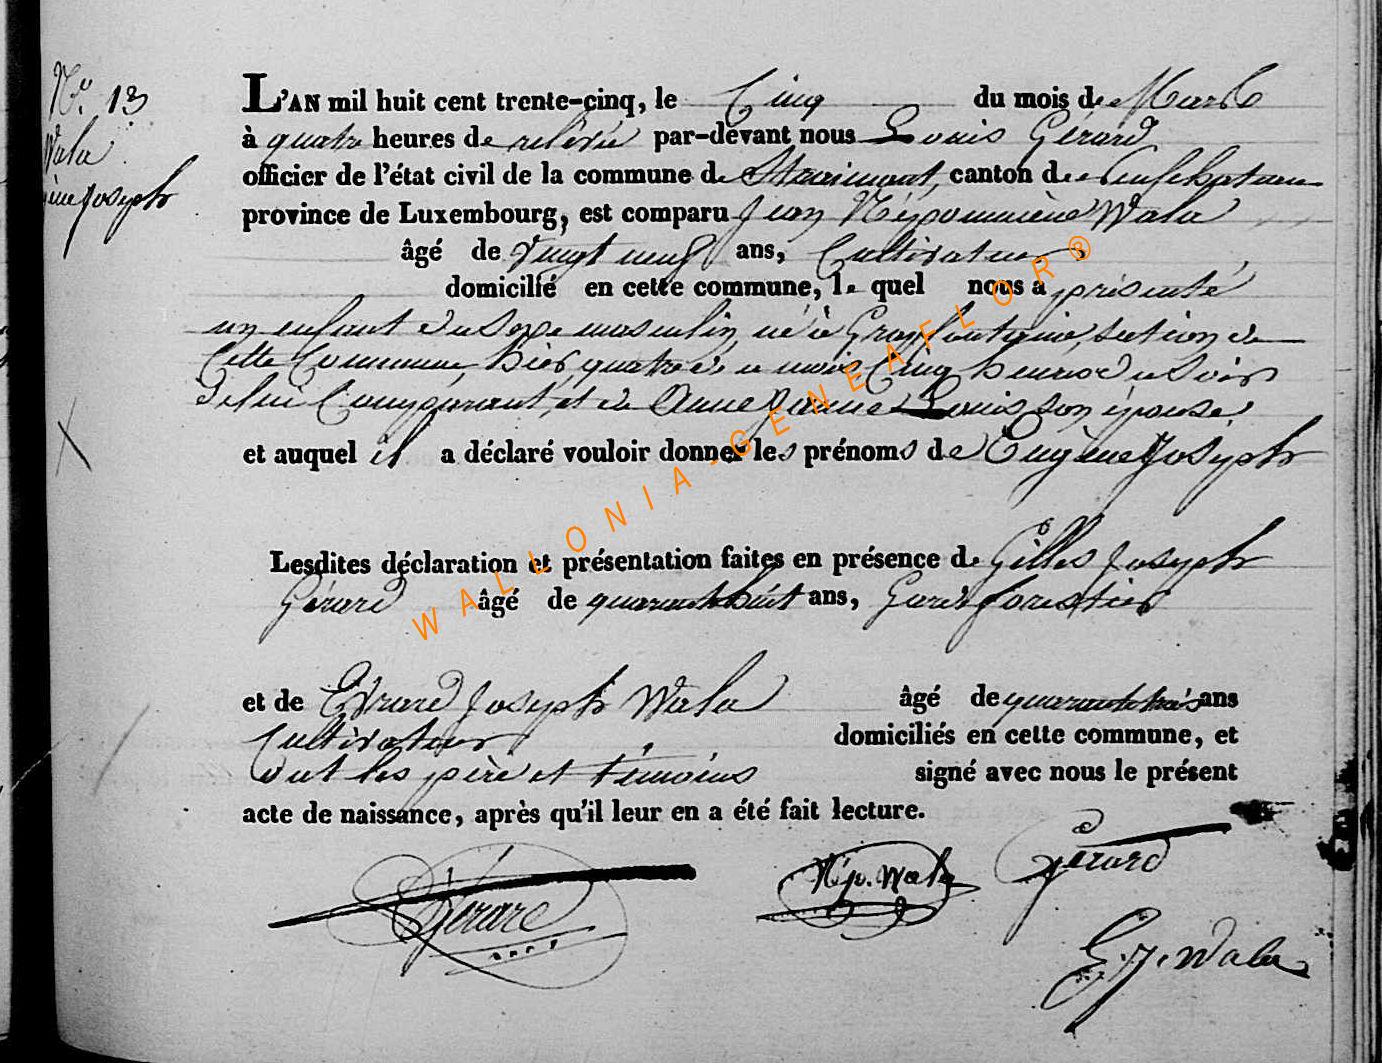 No. 13
Wala
ène Joseph
L'AN mil huit cent trente-cinq, le Cinq du mois de Mars
à quatre heures de relevée par-devant nous Louis Gérard
officier de l'état civil de la commune de Straimont, canton de Neufchateau
province de Luxembourg, est comparu Jean Népomucène Wala
âgé de vingt neuf ans, Cultivateur
domicilié en cette commune, le quel nous a présenté
un enfant du Sexe masculin, né à Grapfontaine, section de
Cette Commune, hier quatre de ce mois, Cinq heures du Soir
de lui Comparant, et de Anne Jeanne Louis son épouse
et auquel il a déclaré vouloir donner les prénoms de Eugène Joseph
Lesdites déclaration et présentation faites en présence de Gilles Joseph
Gérard âgé de quarante huit ans, Garde forestier
et de Evrard Joseph Wala âgé de quarante trois ans
Cultivateur domiciliés en cette commune, et
ont les père et témoins signé avec nous le présent
acte de naissance, après qu'il leur en a été fait lecture.
Gérard
Nép. Wala
Gérard
E. J. Wala
WALLONIA-GENEAFLOR®